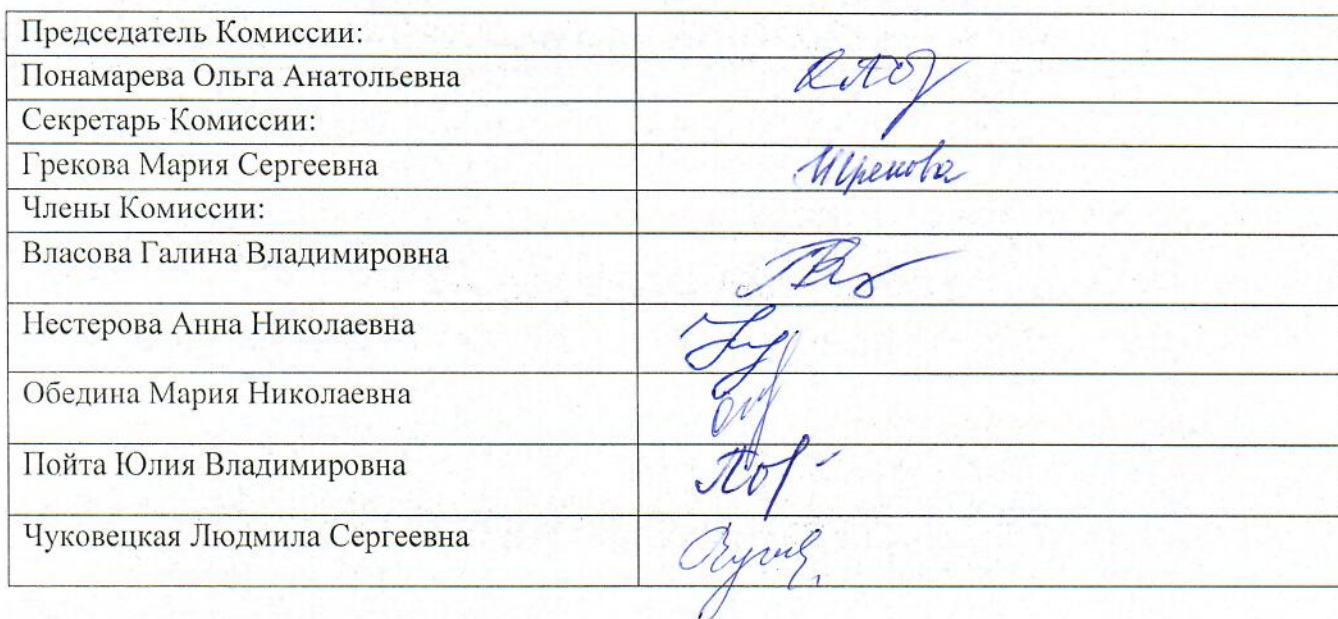 Председатель Комиссии:
Понамарева Ольга Анатольевна
Секретарь Комиссии:
Грекова Мария Сергеевна
МГрекова
Члены Комиссии:
Власова Галина Владимировна
Нестерова Анна Николаевна
Обедина Мария Николаевна
Пойта Юлия Владимировна
Чуковецкая Людмила Сергеевна